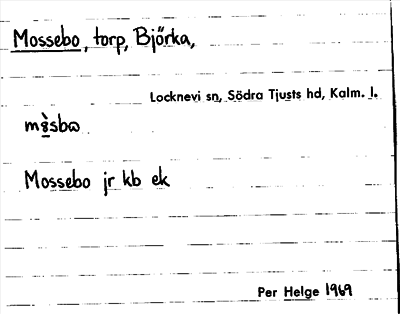 Mossebo, torp, Björka,
Locknevi sn, Södra Tjusts hd, Kalm. l.
Mossebo jr kb ek
Per Helge 1969